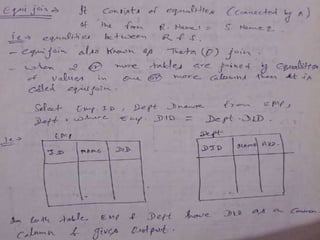 Equi join → It consists of equalities (connected by ∧)
of the form R. Name1 = S. Name2.
i.e → equalities between R & S.
- equijoin also known as Theta (θ) join.
- when 2 or more tables are joined by equalities
of values in one or more columns then it is
called equijoin.
Select Emp.ID, Dept Dname from EMP,
Dept, where Emp. DID = Dept. DID.
i.e → EMP Dept
ID NAME DID DID Name
In both tables EMP & Dept have DID as a common
column & gives Output.